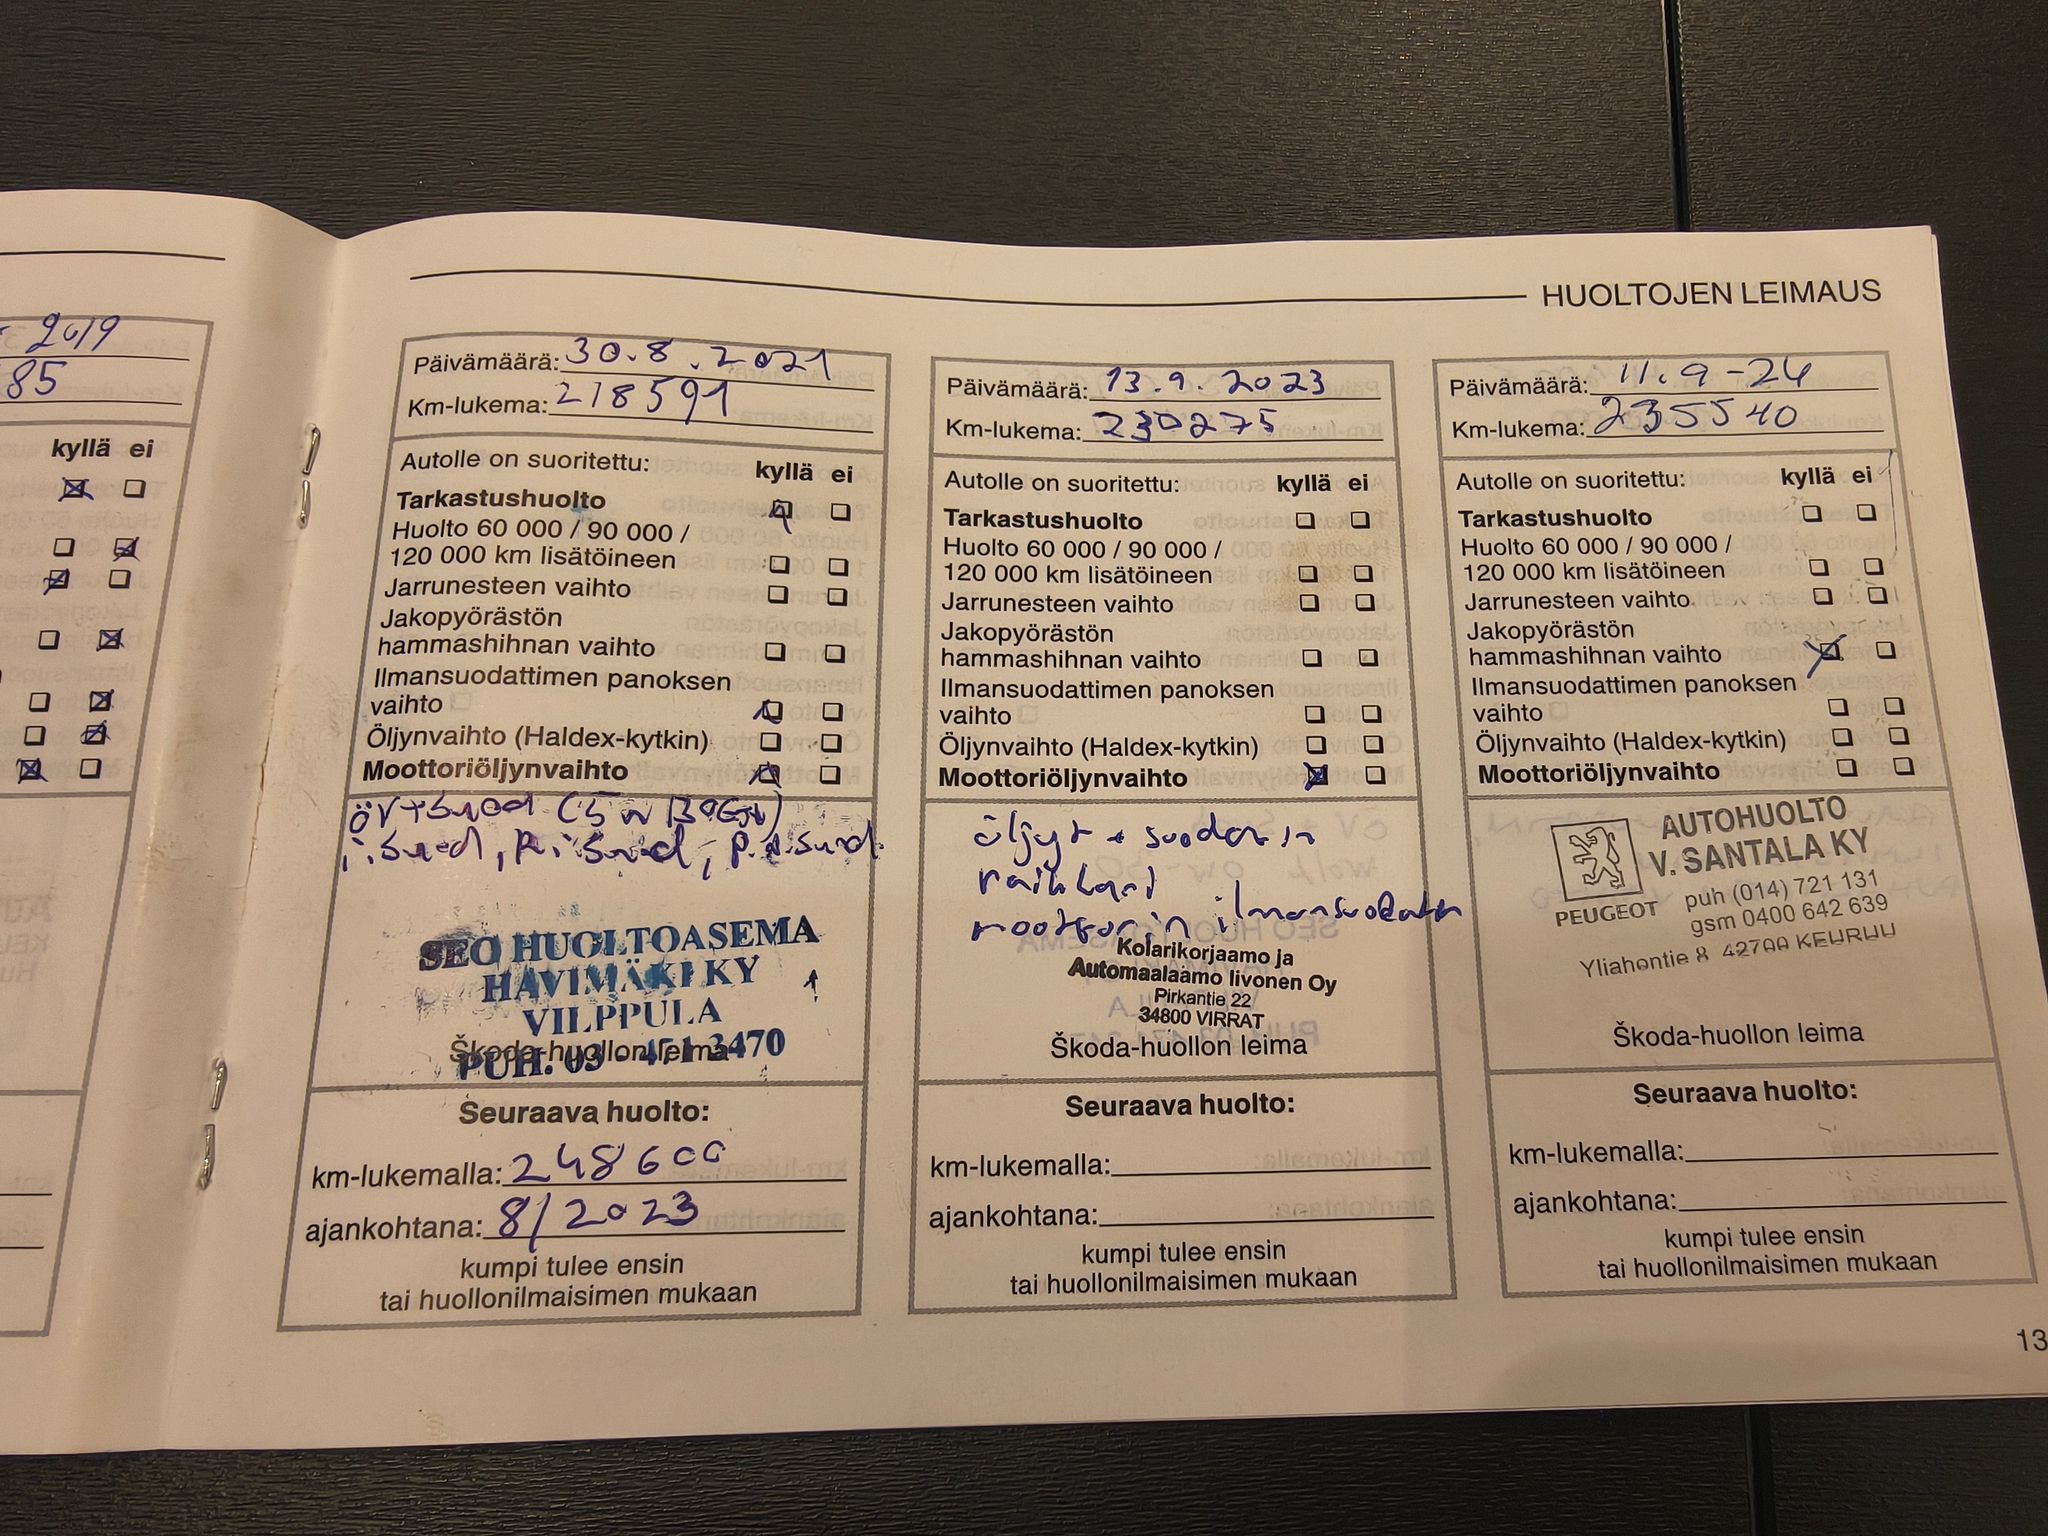 2019
85
kyllä ei
HUOLTOJEN LEIMAUS
Päivämäärä: 30.8.2021
Km-lukema: 218591
Autolle on suoritettu: kyllä ei
Tarkastushuolto
Huolto 60 000 / 90 000 /
120 000 km lisätöineen
Jarrunesteen vaihto
Jakopyörästön
hammashihnan vaihto
Ilmansuodattimen panoksen
vaihto
Öljynvaihto (Haldex-kytkin)
Moottoriöljynvaihto
öv+suod (5w30
i.suod, R.suod, p.a.suod.
SEO HUOLTOASEMA
HAVIMÄKI KY
VILPPULA
PUH. 03 - 471 3470
Škoda-huollon leima
Seuraava huolto:
km-lukemalla: 248600
ajankohtana: 8/2023
kumpi tulee ensin
tai huollonilmaisimen mukaan
Päivämäärä: 13.9.2023
Km-lukema: 230275
Autolle on suoritettu: kyllä ei
Tarkastushuolto
Huolto 60 000 / 90 000 /
120 000 km lisätöineen
Jarrunesteen vaihto
Jakopyörästön
hammashihnan vaihto
Ilmansuodattimen panoksen
vaihto
Öljynvaihto (Haldex-kytkin)
Moottoriöljynvaihto
öljyt + suodatin
moottorin ilmansuodatin
Kolarikorjaamo ja
Automaalaamo Iivonen Oy
Pirkantie 22
34800 VIRRAT
Škoda-huollon leima
Seuraava huolto:
km-lukemalla:
ajankohtana:
kumpi tulee ensin
tai huollonilmaisimen mukaan
Päivämäärä: 11.9-24
Km-lukema: 235540
Autolle on suoritettu: kyllä ei
Tarkastushuolto
Huolto 60 000 / 90 000 /
120 000 km lisätöineen
Jarrunesteen vaihto
Jakopyörästön
hammashihnan vaihto
Ilmansuodattimen panoksen
vaihto
Öljynvaihto (Haldex-kytkin)
Moottoriöljynvaihto
AUTOHUOLTO
V. SANTALA KY
PEUGEOT
puh (014) 721 131
gsm 0400 642 639
Yliahontie 8 42700 KEURUU
Škoda-huollon leima
Seuraava huolto:
km-lukemalla:
ajankohtana:
kumpi tulee ensin
tai huollonilmaisimen mukaan
13